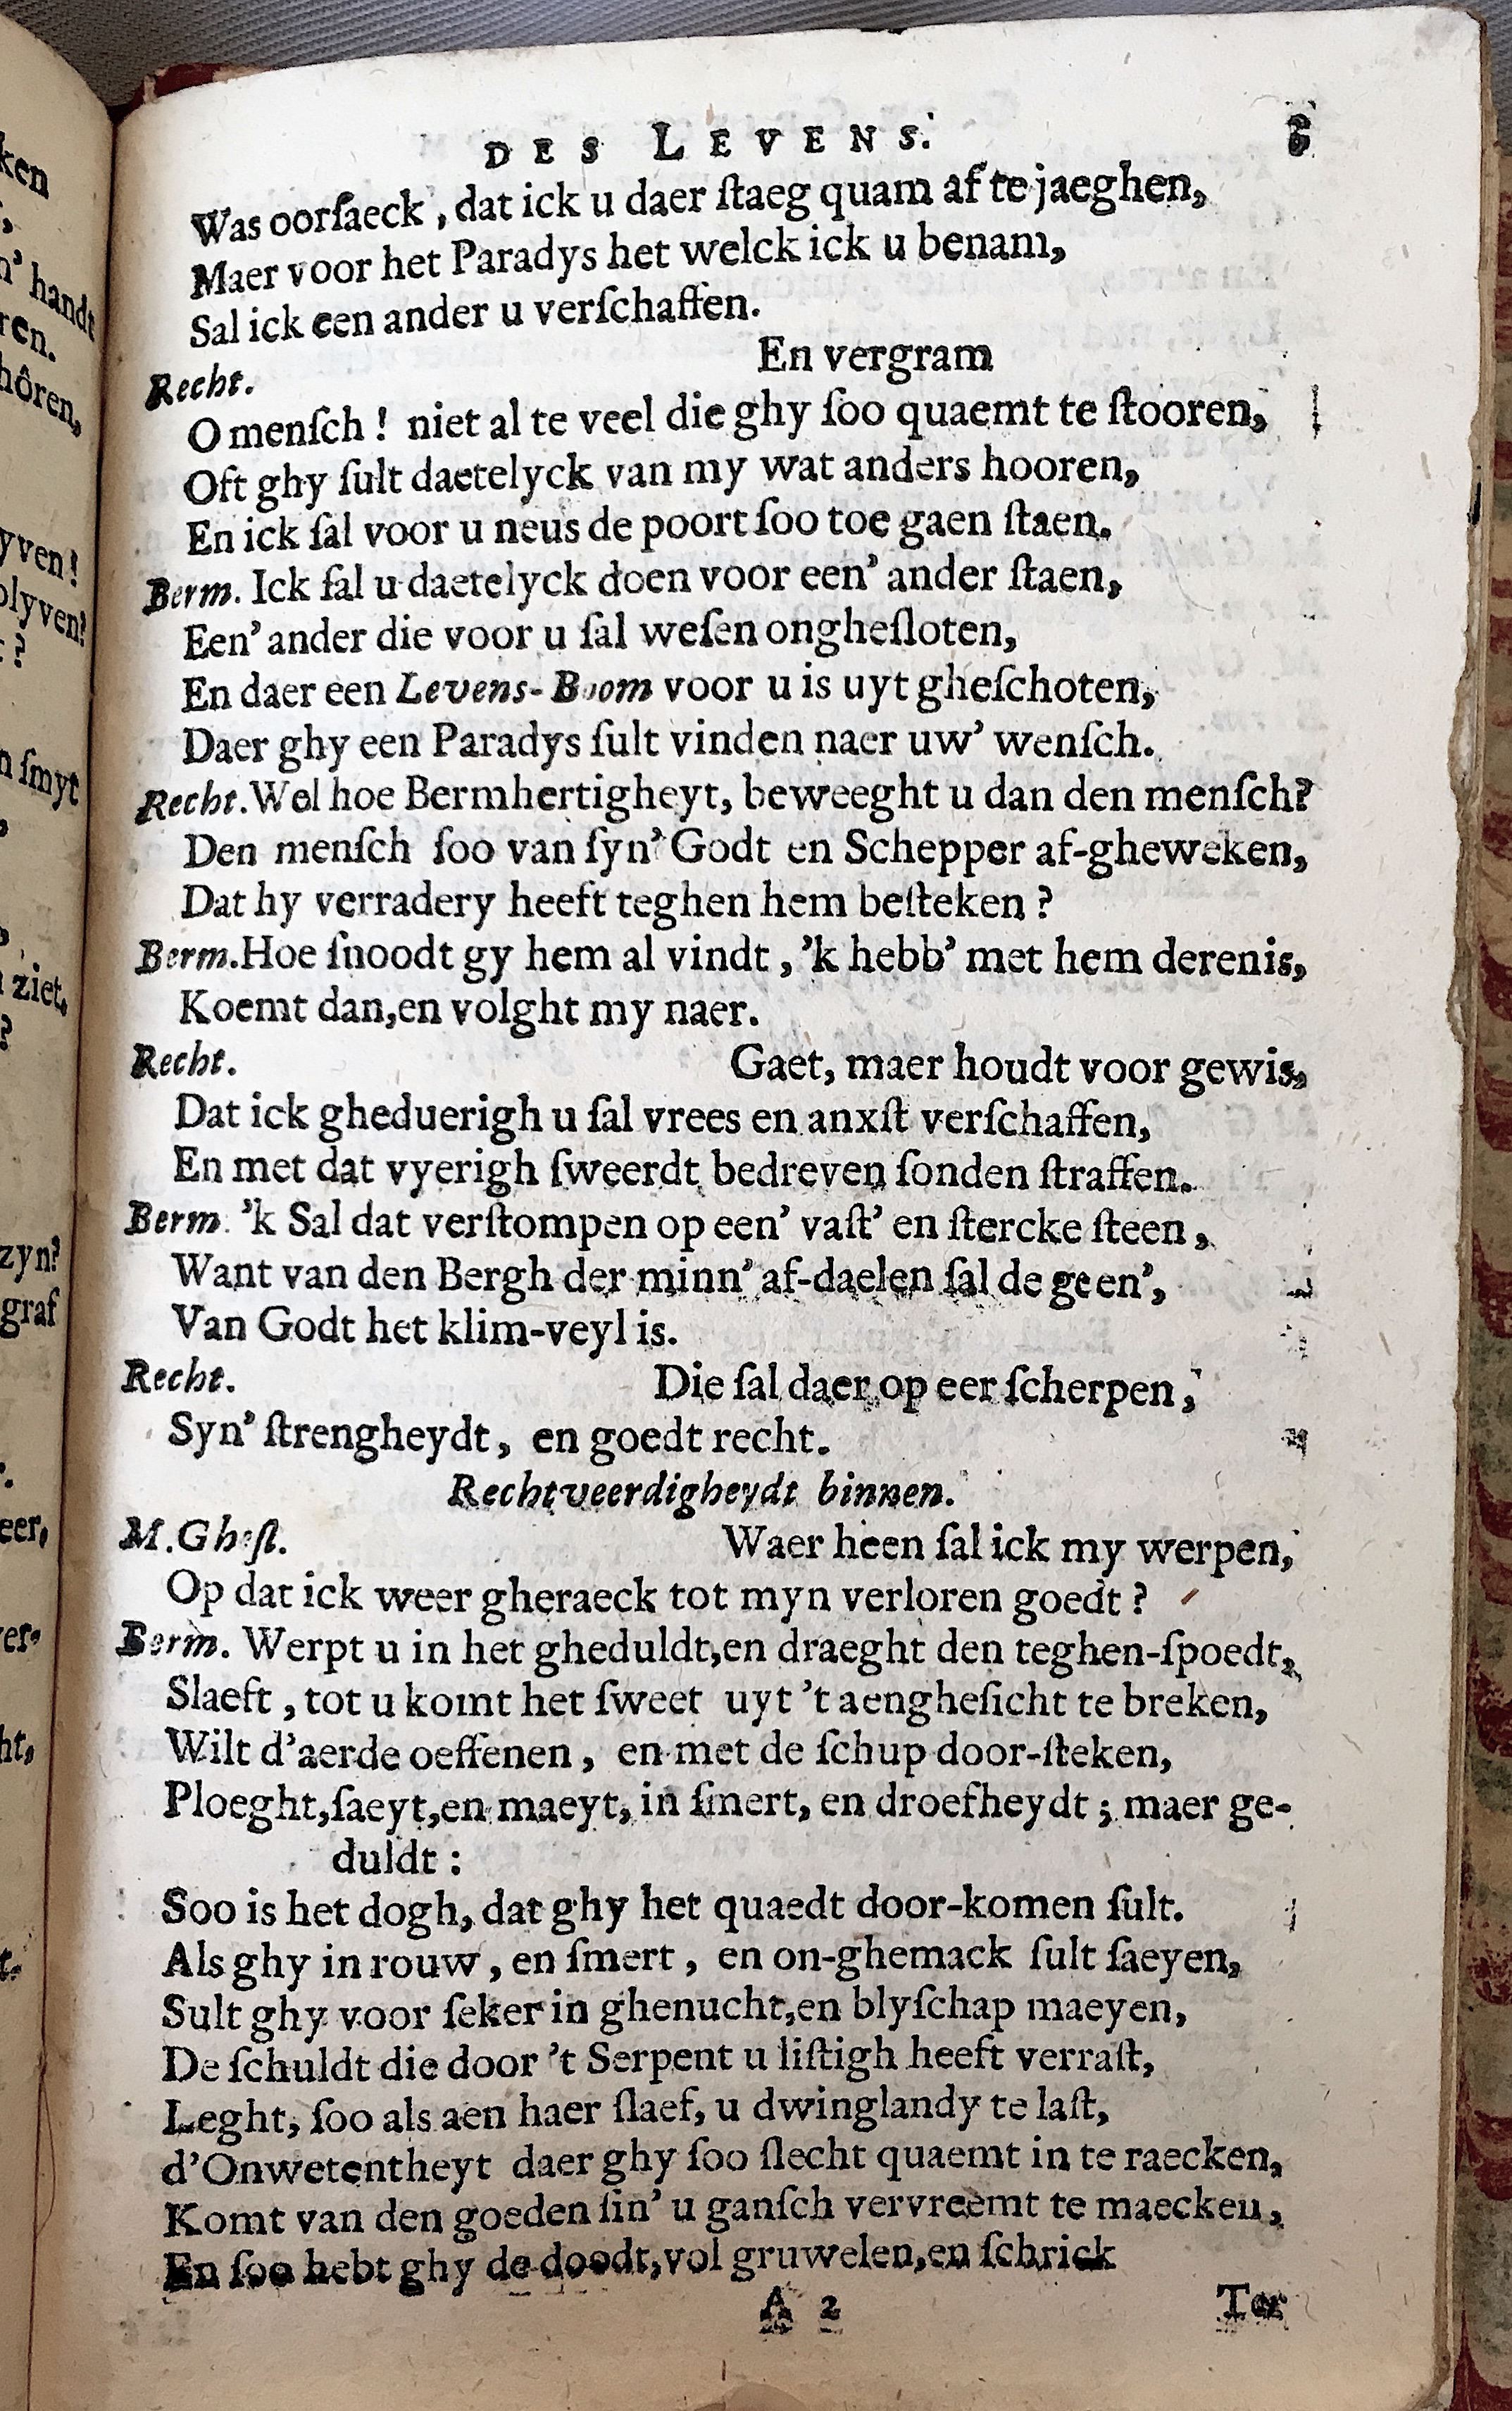 DES LEVENS.
Was oorſaeck, dat ick u daer ſtaeg quam af te jaeghen,
Maer voor het Paradys het welck ick u benam,
Sal ick een ander u verſchaffen.
Recht. En vergram
O menſch! niet al te veel die ghy ſoo quaemt te ſtooren,
Oft ghy ſult daetelyck van my wat anders hooren,
En ick ſal voor u neus de poort ſoo toe gaen ſtaen.
Berm. Ick ſal u daetelyck doen voor een' ander ſtaen,
Een' ander die voor u ſal weſen onghesloten,
En daer een Levens-Boom voor u is uyt gheſchoten,
Daer ghy een Paradys ſult vinden naer uw' wenſch.
Recht. Wel hoe Bermhertigheyt, beweeght u dan den menſch?
Den menſch ſoo van ſyn' Godt en Schepper af-gheweken,
Dat hy verradery heeft teghen hem beſteken?
Berm. Hoe ſnoodt gy hem al vindt, 'k hebb' met hem derenis,
Koemt dan, en volght my naer.
Recht. Gaet, maer houdt voor gewis,
Dat ick gheduerigh u ſal vrees en anxſt verſchaffen,
En met dat vyerigh ſweerdt bedreven ſonden ſtraffen.
Berm. 'k Sal dat verſtompen op een' vaſt' en ſtercke ſteen,
Want van den Bergh der minn' af-daelen ſal de geen',
Van Godt het klim-veyl is.
Recht. Die ſal daer op eer ſcherpen,
Syn' ſtrengheydt, en goedt recht.
Rechtveerdigheydt binnen.
M. Gheſl. Waer heen ſal ick my werpen,
Op dat ick weer gheraeck tot myn verloren goedt?
Berm. Werpt u in het gheduldt, en draeght den teghen-ſpoedt,
Slaeft, tot u komt het ſweet uyt 't aengheſicht te breken,
Wilt d'aerde oeffenen, en met de ſchup door-ſteken,
Ploeght, ſaeyt, en maeyt, in ſmert, en droefheydt; maer ge-
duldt:
Soo is het dogh, dat ghy het quaedt door-komen ſult.
Als ghy in rouw, en ſmert, en on-ghemack ſult ſaeyen,
Sult ghy voor ſeker in ghenucht, en blyſchap maeyen,
De ſchuldt die door 't Serpent u liſtigh heeft verraſt,
Leght, ſoo als aen haer ſlaef, u dwinglandy te laſt,
d'Onwetentheyt daer ghy ſoo ſlecht quaemt in te raecken,
Komt van den goeden ſin' u ganſch vervreemt te maecken,
En ſoo hebt ghy de doodt, vol gruwelen, en ſchrick
A 2